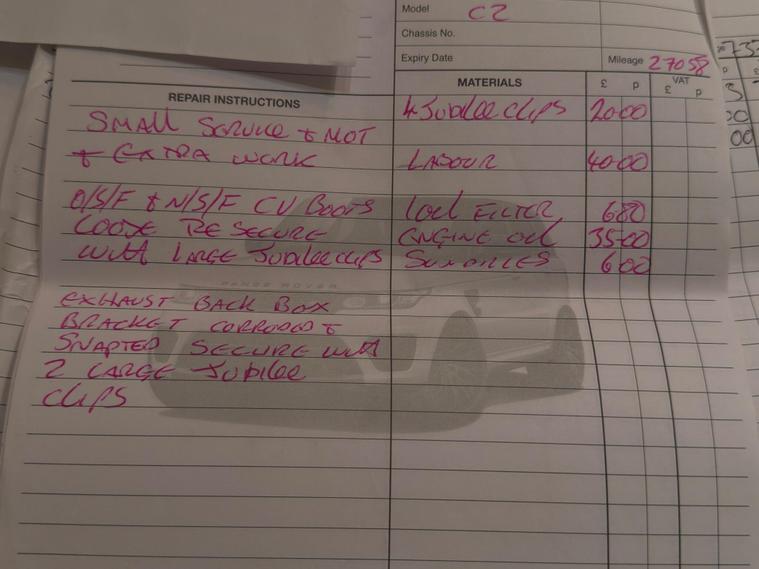 Model C2
Chassis No.
Expiry Date Mileage 27058
REPAIR INSTRUCTIONS MATERIALS £ p VAT £ p
SMALL SERVICE + MOT 4 Jubilee clips 20 00
+ EXTRA WORK LABOUR 40 00
O/S/F + N/S/F CV Boots 1 oil FILTER 6 80
LOOSE RE SECURE ENGINE OIL 35 00
with LARGE Jubilee clips SUNDRIES 6 00
RANGE ROVER
EXHAUST BACK BOX
BRACKET CORRODED +
SNAPPED SECURE with
2 LARGE Jubilee
clips